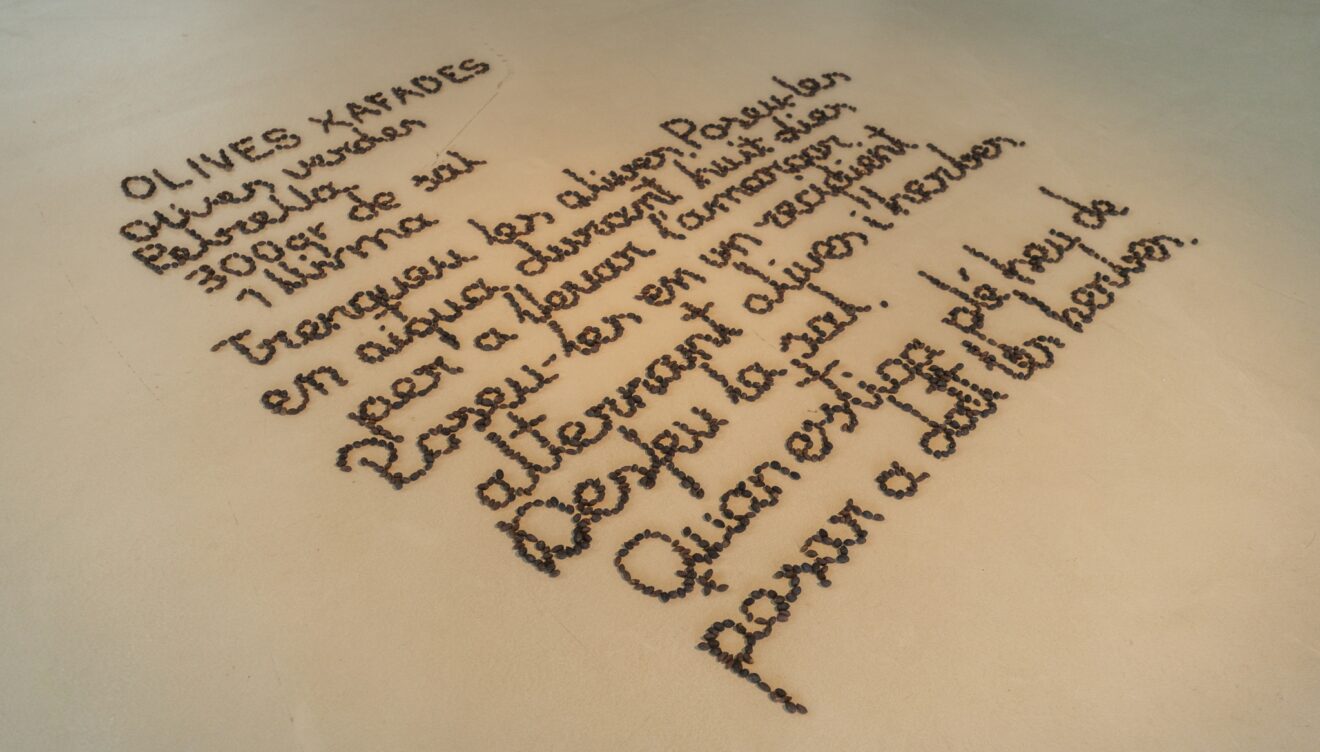 OLIVES XAFADES
olives verdes
Pebrella
300gr de sal
1 llivma
Trenqueu les olives Poseu-les
en aigua durant huit dies
per a llevar l'amargor.
Poseu-les en un recipient
alternant olives i herbes.
Desfeu la sal.
Quan estiga plé heu de
posar a dalt les herbes.